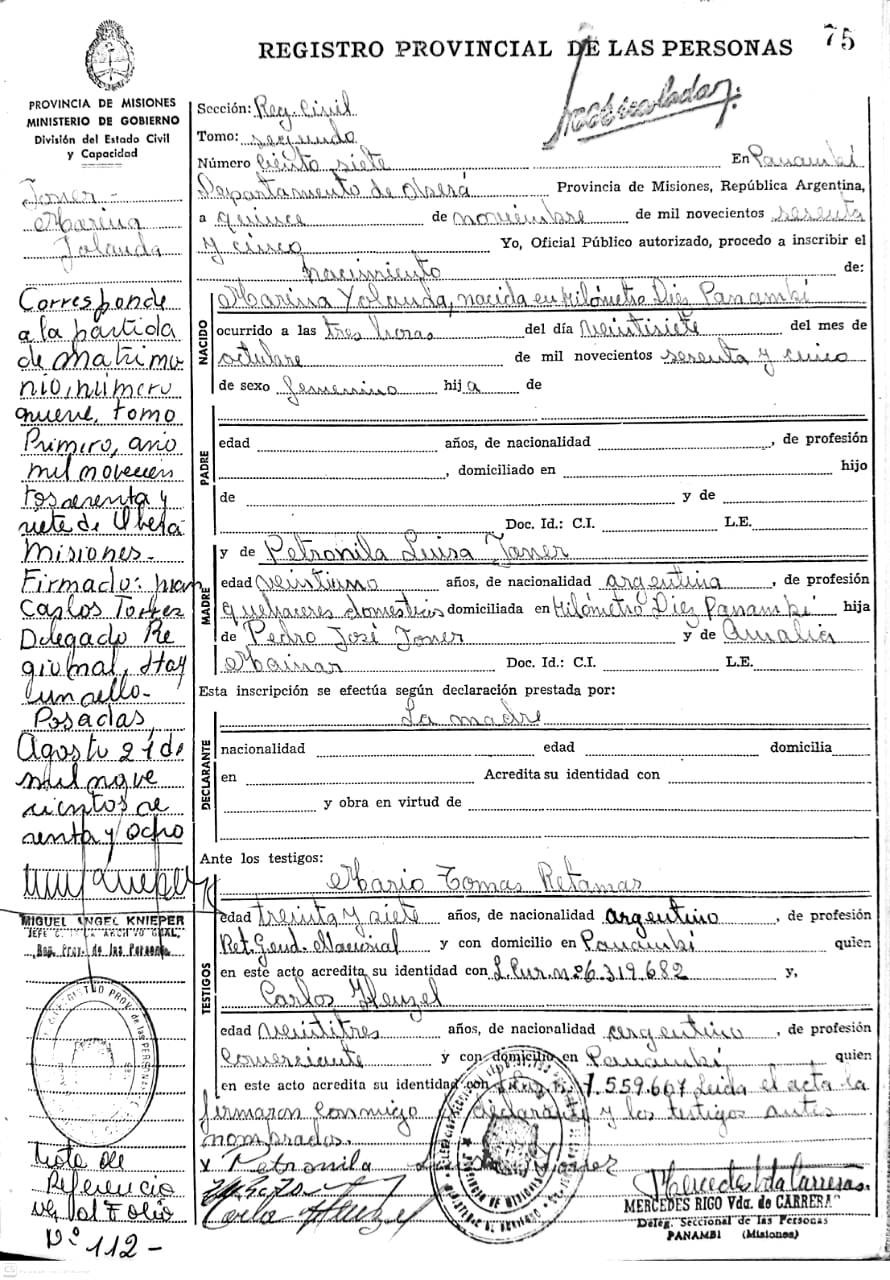 75
REGISTRO PROVINCIAL DE LAS PERSONAS
PROVINCIA DE MISIONES
MINISTERIO DE GOBIERNO
División del Estado Civil
y Capacidad
Joner -
Marina
Jolanda
Corresponde
a la partida
de matrimo
nio, número
nueve, tomo
Primero, año
mil novecien
tos setenta y
siete de Oberá
Misiones -
Firmado: Juan
Carlos Torres
Delegado Re
gional, Hay
un sello -
Posadas,
Agosto 21 de
mil nove
cientos se
tenta y ocho
MIGUEL ANGEL KNIEPER
JEFE ARCHIVO GRAL.
Reg. Prov. de las Personas
REGISTRO PROV. de las PERSONAS
Nota de
Referencia
al Folio
Nº 112 -
Sección: Reg. Civil
Tomo: segundo
Número Ciento siete En Panambí
Departamento de Oberá Provincia de Misiones, República Argentina,
a quince de noviembre de mil novecientos sesenta
y cinco Yo, Oficial Público autorizado, procedo a inscribir el
nacimiento de:
NACIDO
Marina Yolanda, nacida en Kilómetro Diez Panambí
ocurrido a las tres horas del día veintisiete del mes de
octubre de mil novecientos sesenta y cinco
de sexo femenino hija de
PADRE
edad años, de nacionalidad , de profesión
, domiciliado en hijo
de y de
Doc. Id.: C.I. L.E.
MADRE
y de Petronila Luisa Joner
edad veintiuno años, de nacionalidad argentina , de profesión
quehaceres domésticos domiciliada en Kilómetro Diez Panambí hija
de Pedro José Joner y de Amalia
Mainar Doc. Id.: C.I. L.E.
Esta inscripción se efectúa según declaración prestada por:
La madre
DECLARANTE
nacionalidad edad domicilia
en Acredita su identidad con
y obra en virtud de
Ante los testigos:
TESTIGOS
Mario Tomas Retamar
edad treinta y siete años, de nacionalidad argentino , de profesión
Ret. Gend. Nacional y con domicilio en Panambí quien
en este acto acredita su identidad con nº 6.319.682 y,
Carlos Henzel
edad veintitres años, de nacionalidad argentino , de profesión
Comerciante y con domicilio en Panambí quien
en este acto acredita su identidad con 7.559.667 Leida el acta la
firmaron conmigo declarante y los testigos antes
nombrados.
Petronila Luisa Joner
Carlos Henzel
MERCEDES RIGO Vda. de CARRERA
Deleg. Seccional de las Personas
PANAMBI (Misiones)